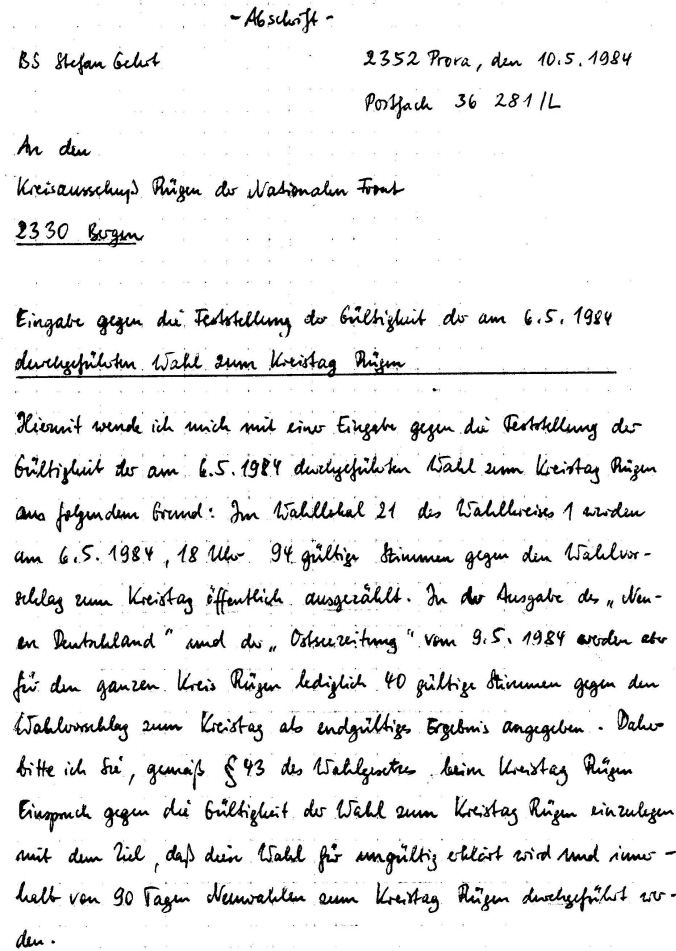 - Abschrift -
BS Stefan Gehrt 2352 Prora, den 10.5.1984
Postfach 36 281/L
An den
Kreisausschuß Rügen der Nationalen Front
2330 Bergen
Eingabe gegen die Feststellung der Gültigkeit der am 6.5.1984
durchgeführten Wahl zum Kreistag Rügen
Hiermit wende ich mich mit einer Eingabe gegen die Feststellung der
Gültigkeit der am 6.5.1984 durchgeführten Wahl zum Kreistag Rügen
aus folgendem Grund: Im Wahllokal 21 des Wahlkreises 1 wurden
am 6.5.1984, 18 Uhr 94 gültige Stimmen gegen den Wahlvor-
schlag zum Kreistag öffentlich ausgezählt. In der Ausgabe des „Neu-
en Deutschland" und der „Ostseezeitung" vom 9.5.1984 werden aber
für den ganzen Kreis Rügen lediglich 40 gültige Stimmen gegen den
Wahlvorschlag zum Kreistag als endgültiges Ergebnis angegeben. Daher
bitte ich Sie, gemäß § 43 des Wahlgesetzes beim Kreistag Rügen
Einspruch gegen die Gültigkeit der Wahl zum Kreistag Rügen einzulegen
mit dem Ziel, daß diese Wahl für ungültig erklärt wird und inner-
halb von 90 Tagen Neuwahlen zum Kreistag Rügen durchgeführt wer-
den.